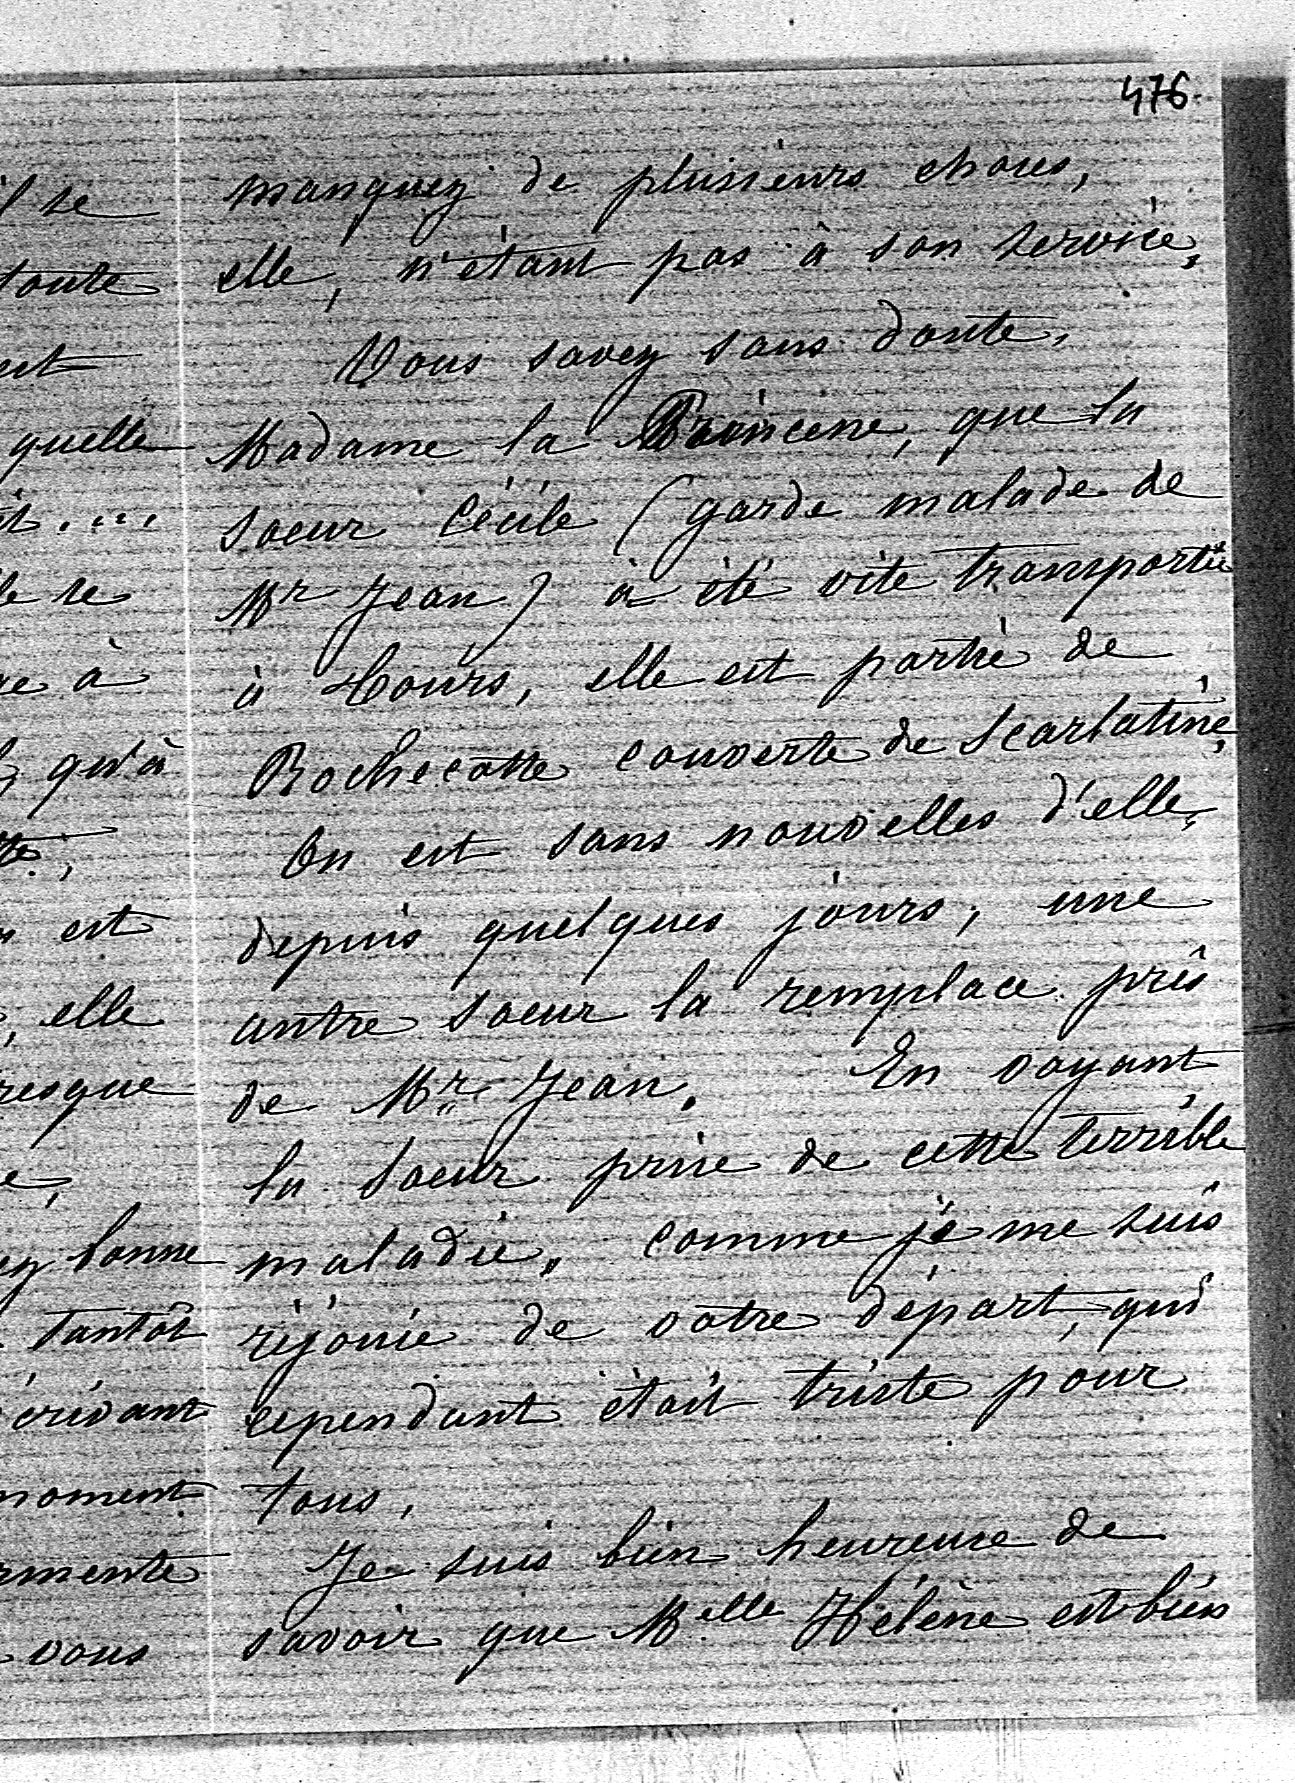 476.
'il se
toute
est
quelle
it....
le se
ue à
z qu'à
tte.,
n est
, elle
resque
e,
ez bonne
. tantôt
écrivant
moment
rmente
vous
manquez de plusieurs choses,
elle, n'étant pas à son service,
Vous savez sans doute,
Madame la Princesse, que la
soeur Cécile (garde malade de
Mr Jean) à été vite transportée
à Tours, elle est partie de
Rochecotte couverte de Scarlatine,
On est sans nouvelles d'elle,
depuis quelques jours, une
autre soeur la remplace près
de Mr Jean. En voyant
la soeur prise de cette terrible
maladie, comme je me suis
réjouie de votre départ, qui
cependant était triste pour
tous,
Je suis bien heureuse de
savoir que Melle Hélène est bien